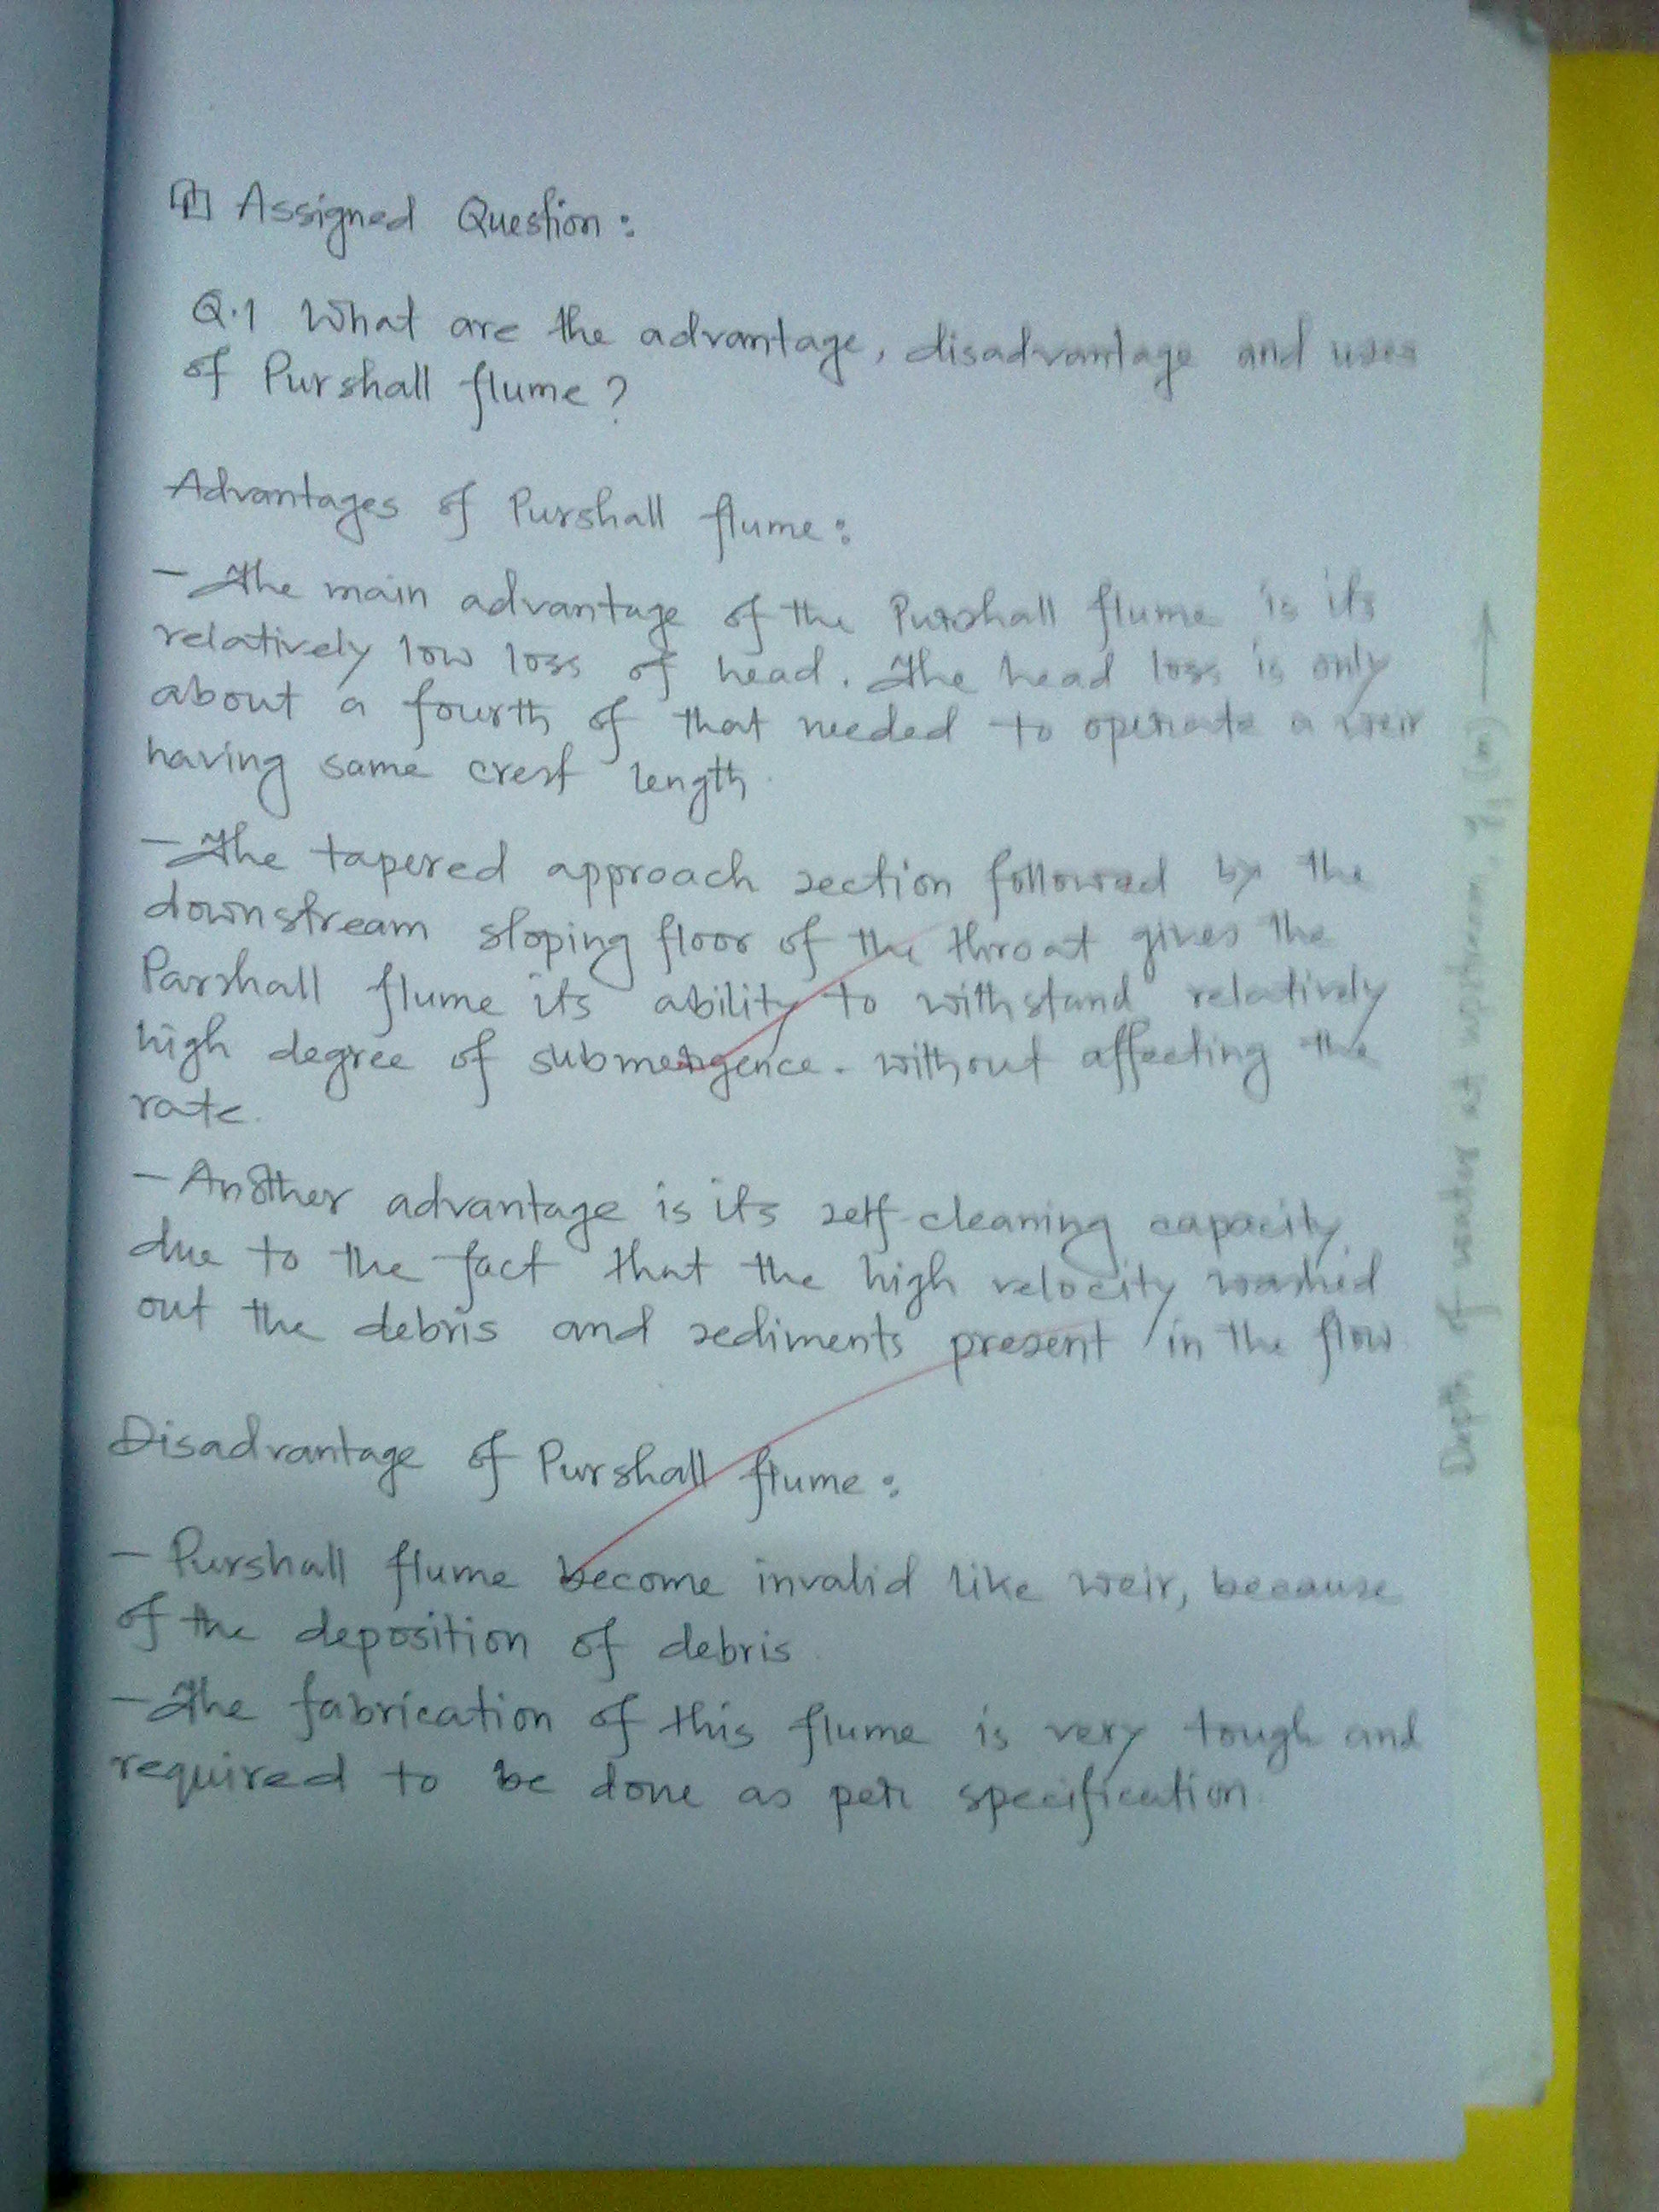 Assigned Question:
Q.1 What are the advantage, disadvantage and uses
of Purshall flume?
Advantages of Purshall flume:
- The main advantage of the Purshall flume is its
relatively low loss of head. The head loss is only
about a fourth of that needed to operate a weir
having same crest length.
- The tapered approach section followed by the
downstream sloping floor of the throat gives the
Parshall flume its ability to withstand relatively
high degree of submergence. without affecting the
rate.
- Another advantage is its self-cleaning capacity
due to the fact that the high velocity washed
out the debris and sediments present in the flow
Disadvantage of Purshall flume:
- Purshall flume become invalid like weir, because
of the deposition of debris
- The fabrication of this flume is very tough and
required to be done as per specification.
Depth of water at upstream, y₁ (m) →